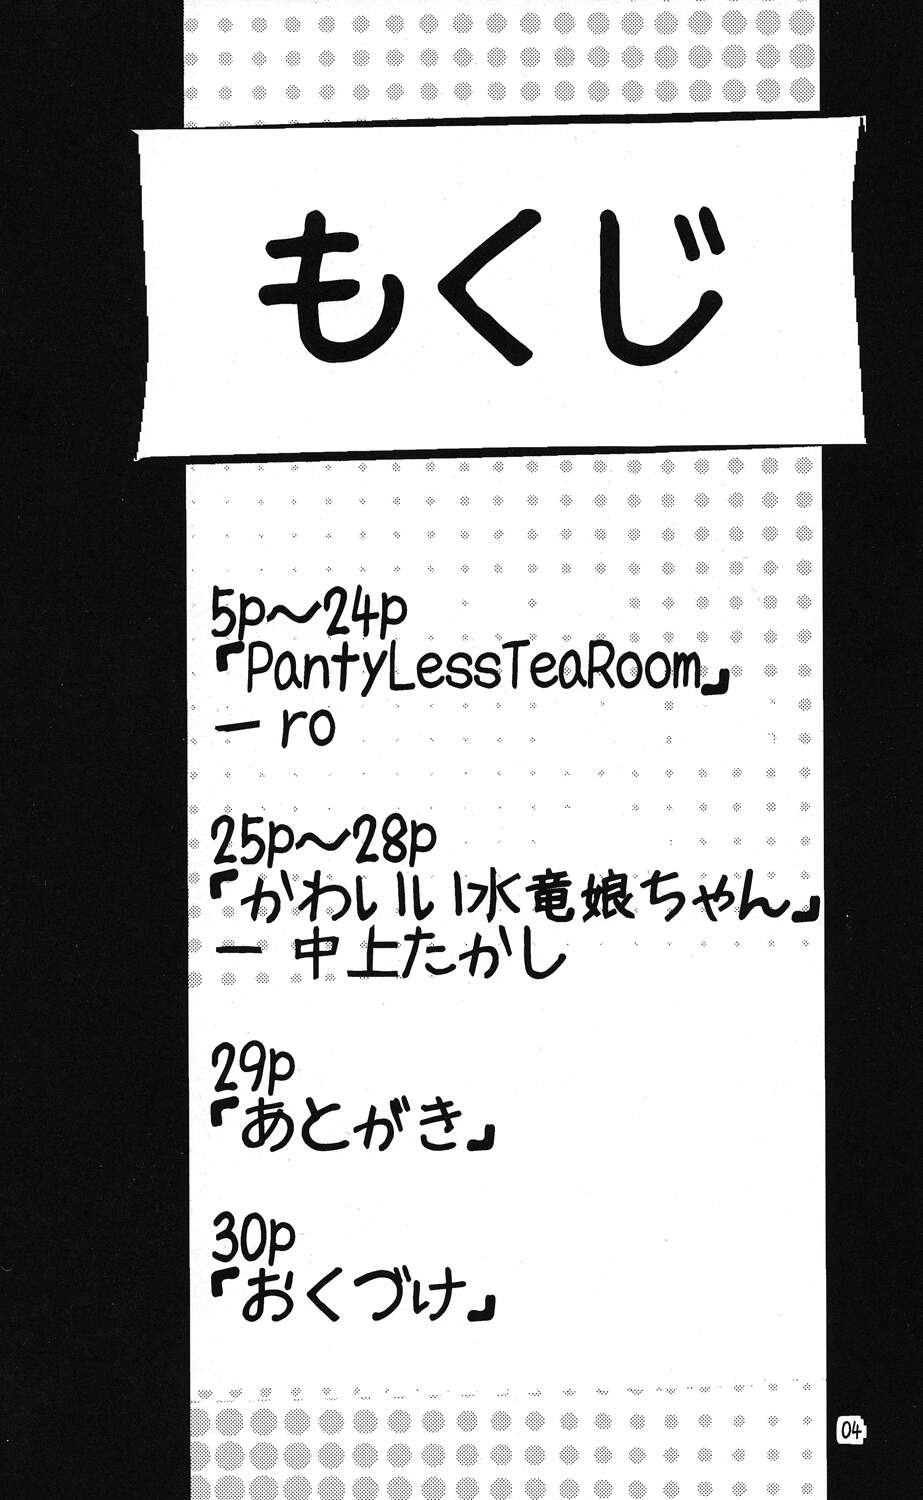 もくじ
5p～24p
『PantyLessTeaRoom』
ー ro
25p～28p
『かわいい水竜娘ちゃん』
ー 中上たかし
29p
『あとがき』
30p
『おくづけ』
04